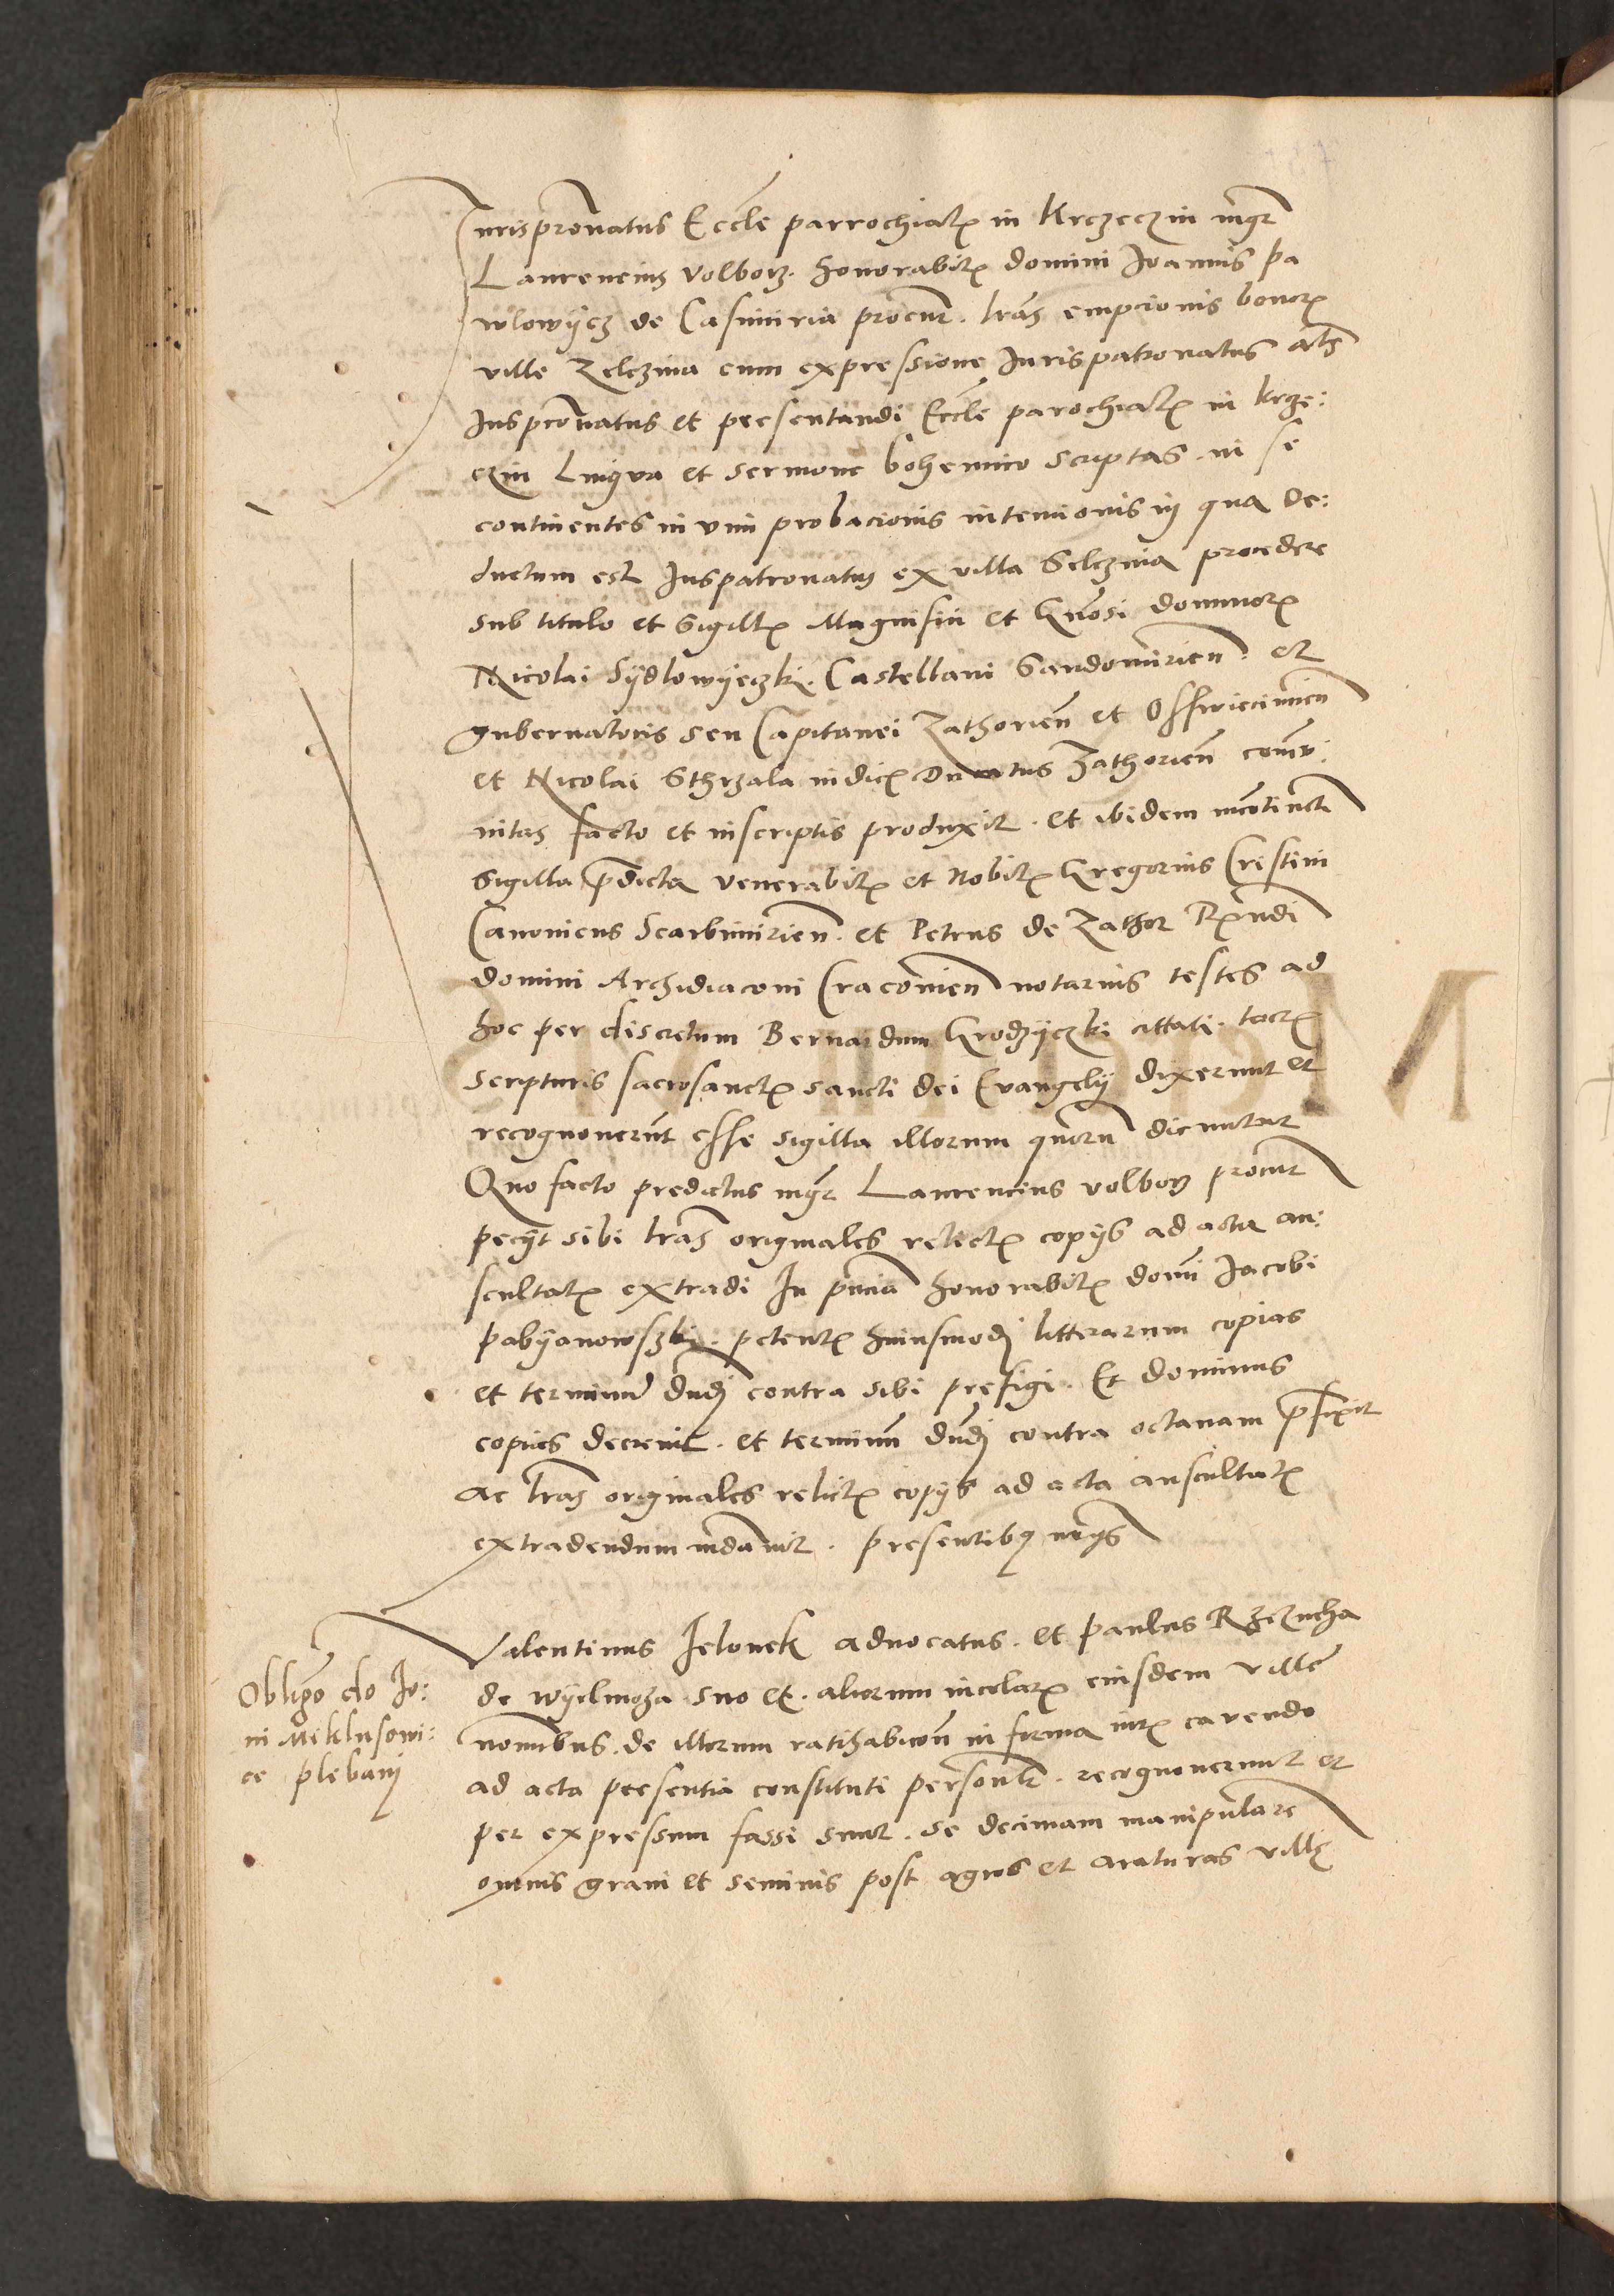 Jurispronatus Eccle parrochialis in Krczeczin mgr
Laurencius Volborz honorabilis domini Joannis pa
wlowycz de Casimiria procur. lras empcionis bonorum
ville Zelczina cum expressione Jurispatronatus als
Juspronatus et presentandi Eccle parochialis in krcze:
czin Lingva et sermone bohemico scriptas in se
continentes in vim probacionis intencionis in qua de:
ductum est Juspatronatus ex villa Selczina procedere
sub titulo et sigillis Magnifici et Gnosi dominorum
Nicolai Sydlowyeczki Castellani Sandomirien. et
gubernatoris seu Capitanei Zathorien et Osswiecimien
et Nicolai Sthrzala iudicis Ducatus Zathorien
facto et inscriptis produxit. et ibidem incontinenti
sigilla predicta venerabilis et Nobilis Gregorius Cristini
Canonicus Scarbimirien. et Petrus de Zathor Rndi
domini Archidiaconi Cracovien notarius testes ad
hoc per discretum Bernardum Grodzyczki cittati. tactis
scripturis sacrosanctis sancti dei Evangelij dixerunt et
recognoverunt esse sigilla illorum quorum dicuntur
Quo facto predictus mgr Laurencius volborz procur
pecyt sibi lras originales relictis copijs ad acta au:
scultatis extradi In pncia honorabilis domi Jacobi
pabyanowszki. petentis huiusmodi litterarum copias
et terminum dndi contra sibi prefigi. Et dominus
copias decrevit. et terminum dndi contra octavam prefixit
ac lras originales relictis copijs ad acta auscultatis
extradendum mdavit. presentibus
Valentinus Jelonek advocatus. et paulus Rzezucha
de wyelmoza suo et. aliorum incolarum eiusdem ville
nominibus. de illorum ratihabicion in forma iuris cavendo
ad acta presentia constituti personlr. recognoverunt et
per expressum fassi sunt. se decimam manipularem
omnis grani et seminis post agros et araturas ville
Obligo do Jo:
ni Miklusowi:
ce plebani